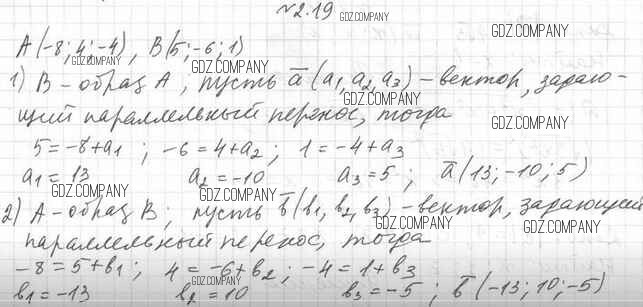 №2.19
GDZ.COMPANY
A(-8; 4; -4), B(5; -6; 1)
GDZ.COMPANY
GDZ.COMPANY
GDZ.COMPANY
1) B - образ A, пусть a̅(a₁, a₂, a₃) - вектор, задаю-
GDZ.COMPANY
щий параллельный перенос, тогда
GDZ.COMPANY
5 = -8 + a₁; -6 = 4 + a₂; 1 = -4 + a₃
a₁ = 13 a₂ = -10 a₃ = 5; a̅(13; -10; 5)
GDZ.COMPANY
GDZ.COMPANY
GDZ.COMPANY
2) A - образ B; пусть b̅(b₁, b₂, b₃) - вектор, задающий
GDZ.COMPANY
GDZ.COMPANY
параллельный перенос, тогда
-8 = 5 + b₁; 4 = -6 + b₂; -4 = 1 + b₃
GDZ.COMPANY
b₁ = -13 b₂ = 10 b₃ = -5; b̅(-13; 10; -5)